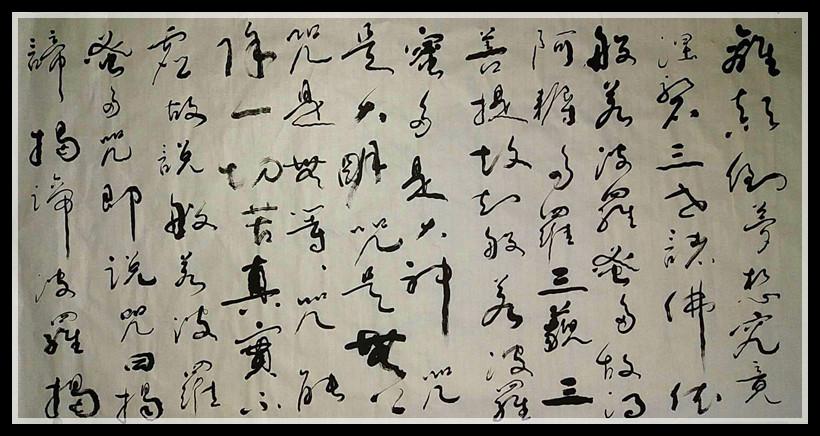 離顛倒夢想究竟
涅槃三世諸佛依
般若波羅蜜多故得
阿耨多羅三藐三
菩提故知般若波羅
蜜多是大神咒
是大明咒是無上
咒是無等等咒能
除一切苦真實不
虛故說般若波羅
蜜多咒即說咒曰揭
諦揭諦波羅揭